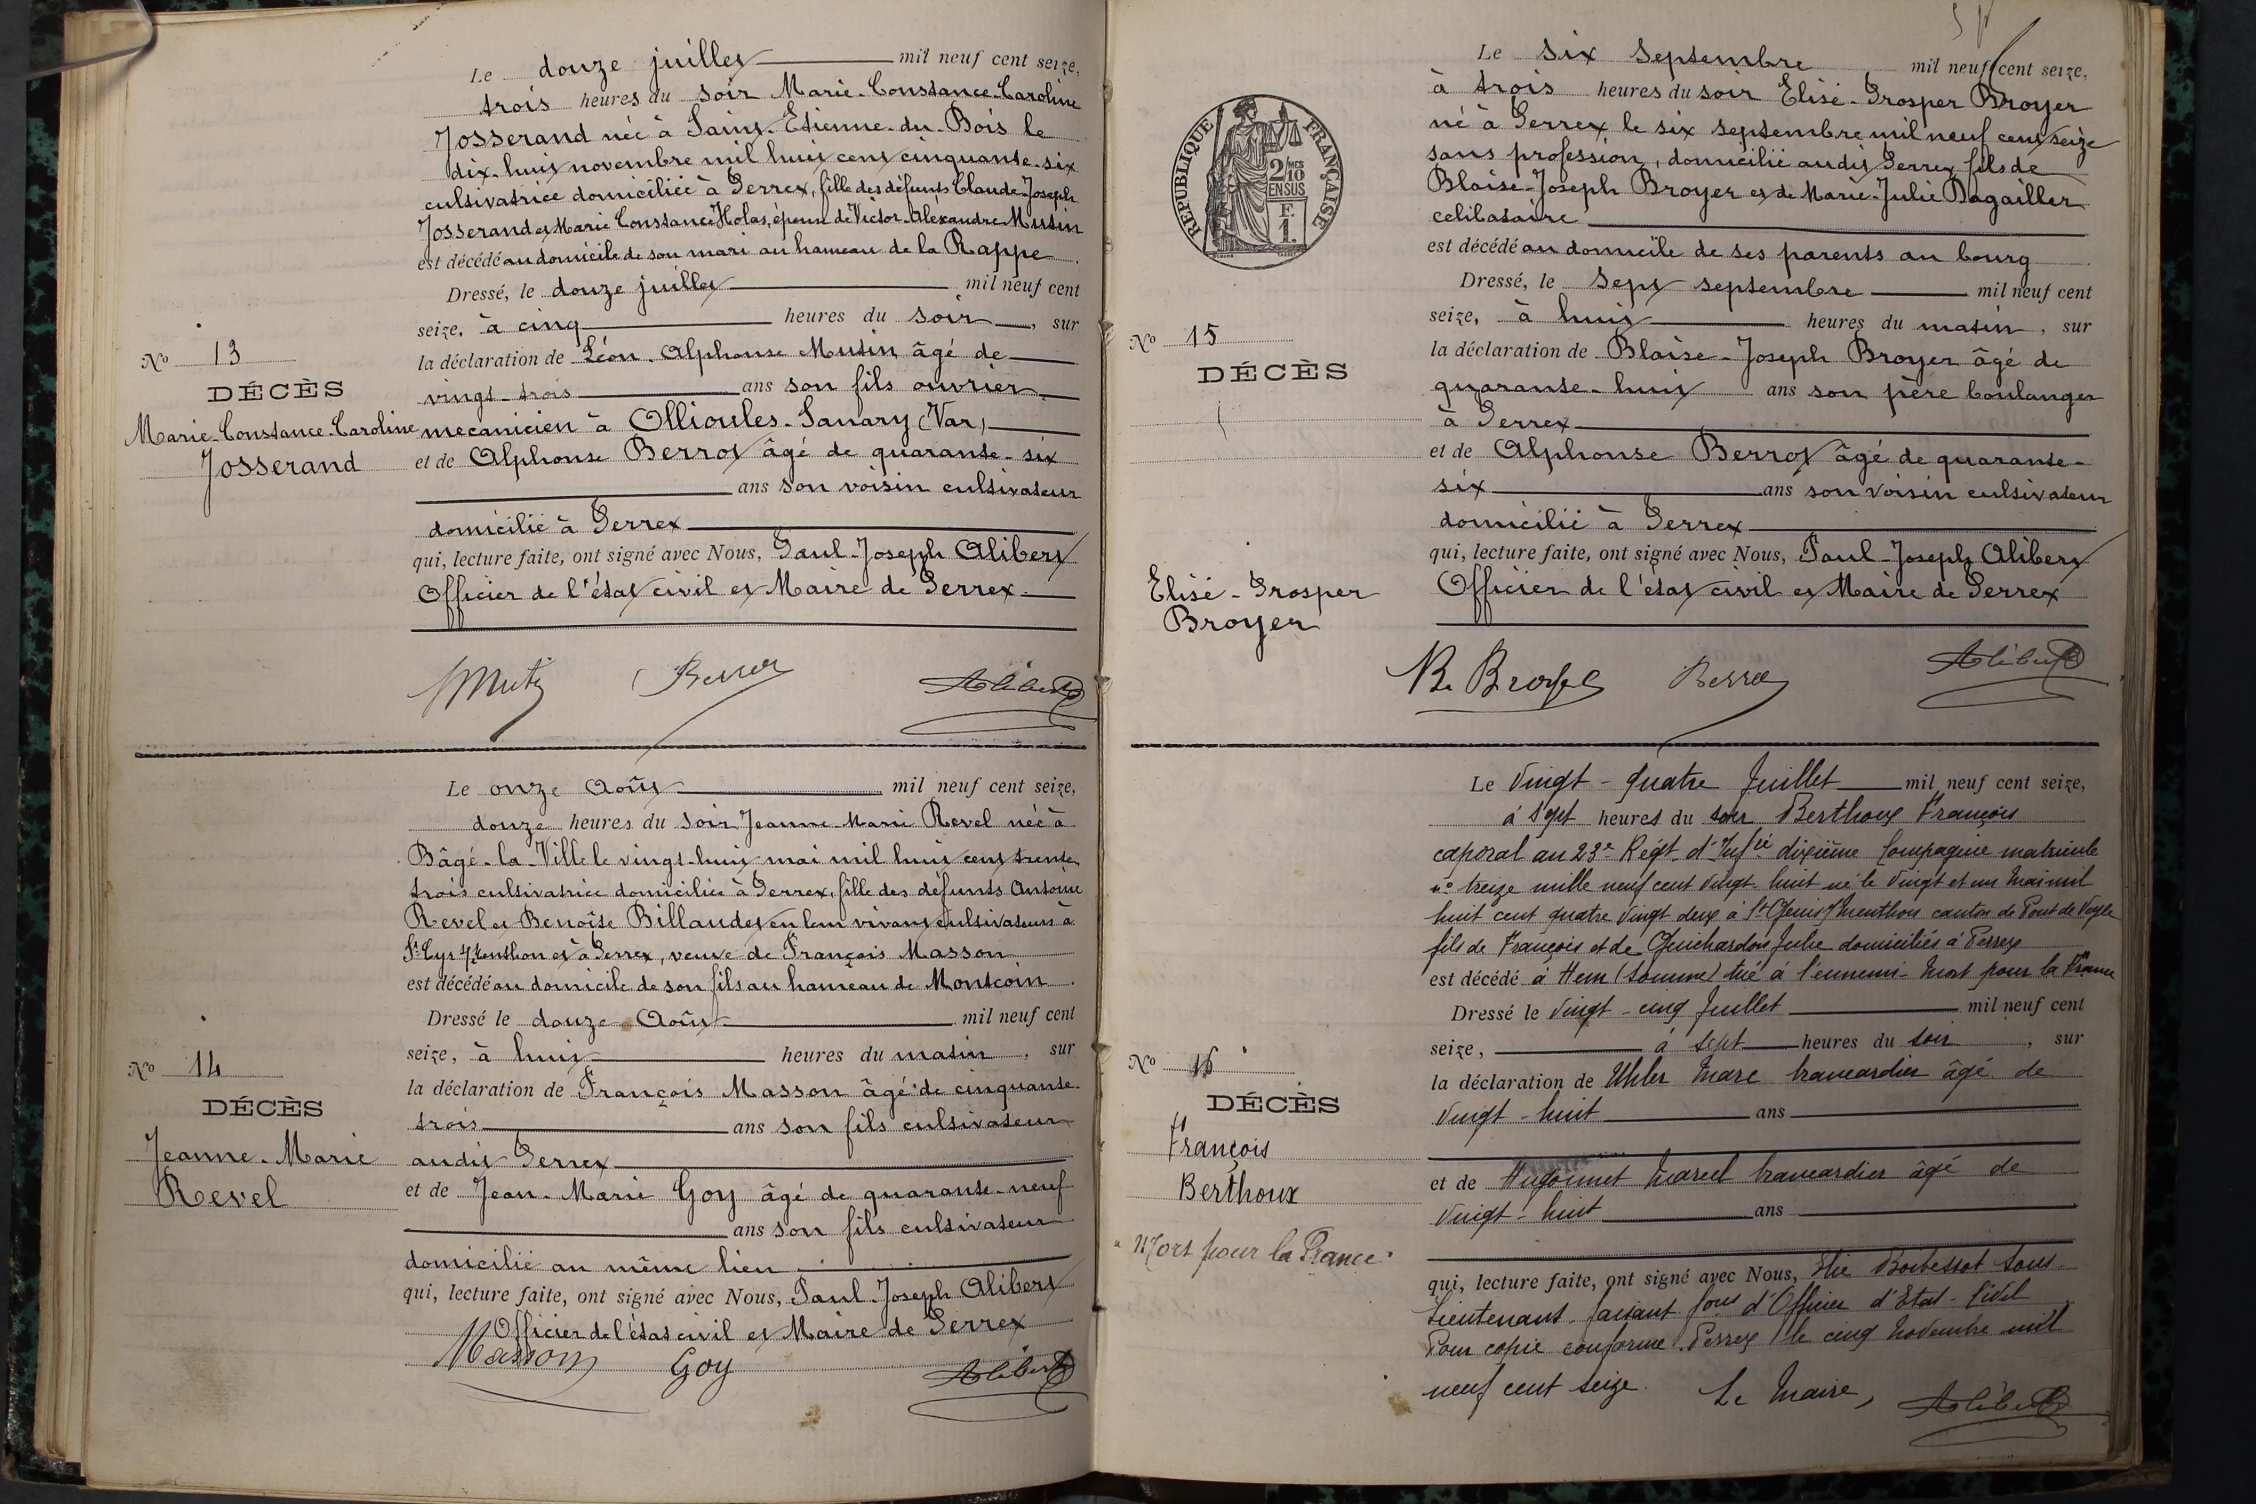 Le douze juillet mil neuf cent seize,
trois heures du soir Marie-Constance-Caroline
Josserand née à Saint-Etienne-du-Bois le
dix-huit novembre mil huit cent cinquante-six
cultivatrice domiciliée à Perrex, fille des défunts Claude-Joseph
Josserand et Marie Constance Holas, épouse de Victor-Aléxandre Mutin
est décédé au domicile de son mari au hameau de la Rappe
Dressé, le douze juillet mil neuf cent
seize, à cinq heures du soir, sur
la déclaration de Léon-Alphonse Mutin âgé de
vingt-trois ans son fils ouvrier
mecanicien à Ollioules-Sanary (Var)
et de Alphonse Berrot âgé de quarante-six
ans son voisin cultivateur
domicilié à Perrex
qui, lecture faite, ont signé avec Nous, Paul-Joseph Alibert
Officier de l'état civil et Maire de Perrex
No 13
DÉCÈS
Marie-Constance-Caroline
Josserand
Alibert
Le onze Août mil neuf cent seize,
douze heures du soir Jeanne-Marie Revel née à
Bâgé-la-Ville le vingt-huit mai mil huit cent trente
trois cultivatrice domiciliée à Perrex, fille des défunts Antoine
Revel et Benoîte Billaudet en leur vivant cultivateurs à
St Cyr s/ Menthon et à Perrex, veuve de François Masson
est décédé au domicile de son fils au hameau de Montcoin
Dressé le douze Août mil neuf cent
seize, à huit heures du matin, sur
la déclaration de François Masson âgé de cinquante-
trois ans son fils cultivateur
audit Perrex
et de Jean-Marie Goy âgé de quarante-neuf
ans son fils cultivateur
domicilié au même lieu
qui, lecture faite, ont signé avec Nous, Paul-Joseph Alibert
Officier de l'état civil et Maire de Perrex
No 14
DÉCÈS
Jeanne-Marie
Revel
Masson Goy Alibert
RÉPUBLIQUE FRANÇAISE
2/10 MES
EN SUS
F.
1.
Le six septembre mil neuf cent seize,
à trois heures du soir Elisé-Prosper Broyer
né à Perrex le six septembre mil neuf cent seize
sans profession, domicilié audit Perrex fils de
Blaise-Joseph Broyer et de Marie-Julie Dagaillier
celibataire
est décédé au domicile de ses parents au bourg
Dressé, le sept septembre mil neuf cent
seize, à huit heures du matin, sur
la déclaration de Blaise-Joseph Broyer âgé de
quarante-huit ans son père boulanger
à Perrex
et de Alphonse Berrot âgé de quarante-
six ans son voisin cultivateur
domicilié à Perrex
qui, lecture faite, ont signé avec Nous, Paul-Joseph Alibert
Officier de l'état civil et Maire de Perrex
No 15
DÉCÈS
Elisé-Prosper
Broyer
Alibert
Le Vingt-quatre Juillet mil neuf cent seize,
à sept heures du soir Berthoux François
caporal au 23e Regt d'Infie dixième Compagnie matricule
no treize mille neuf cent vingt-huit né le vingt et un mai mil
huit cent quatre vingt deux à St Genis s/ Menthon canton de Pont de Veyle
fils de François et de Guichardon Julie domiciliés à Perrex
est décédé à Hem (Somme) tué à l'ennemi - Mort pour la France
Dressé le vingt-cinq Juillet mil neuf cent
seize, à sept heures du soir, sur
la déclaration de Uhler Marc brancardier âgé de
vingt-huit ans
et de Hugonnet Marcel brancardier âgé de
vingt-huit ans
qui, lecture faite, ont signé avec Nous, Elie sous-
Lieutenant faisant fons d'Officier d'Etat-Civil
Pour copie conforme Perrex le cinq Novembre mil
neuf cent seize. Le Maire, Alibert
No 16
DÉCÈS
François
Berthoux
"Mort pour la France"